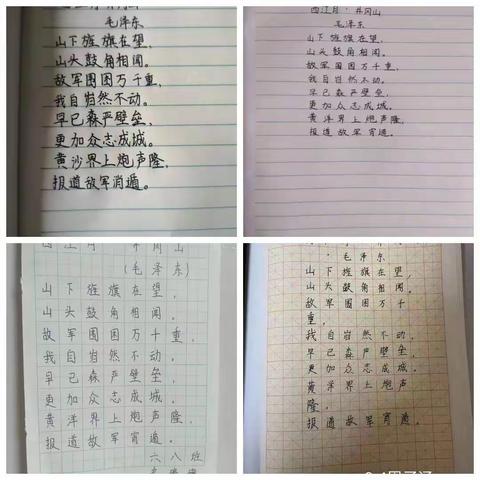 毛泽东
山下旌旗在望,
山头鼓角相闻。
敌军围困万千重,
我自岿然不动。
早已森严壁垒,
更加众志成城。
黄沙界上炮声隆,
报道敌军消遁。
西江月·井冈山
毛泽东
山下旌旗在望,
山头鼓角相闻。
敌军围困万千重,
我自岿然不动。
早已森严壁垒,
更加众志成城。
黄洋界上炮声隆,
报道敌军宵遁。
西江月 井冈山
(毛泽东)
山下旌旗在望,
山头鼓角相闻。
敌军围困万千重,
我自岿然不动。
早已森严壁垒,
更加众志成城。
黄洋界上炮声隆,
报道敌军宵遁。
六八班
毛泽东
山下旌旗在望,
山头鼓角相闻。
敌军围困万千
重,
我自岿然不动,
早已森严壁垒,
更加众志成城。
黄洋界上炮声
隆,
报道敌军宵遁。